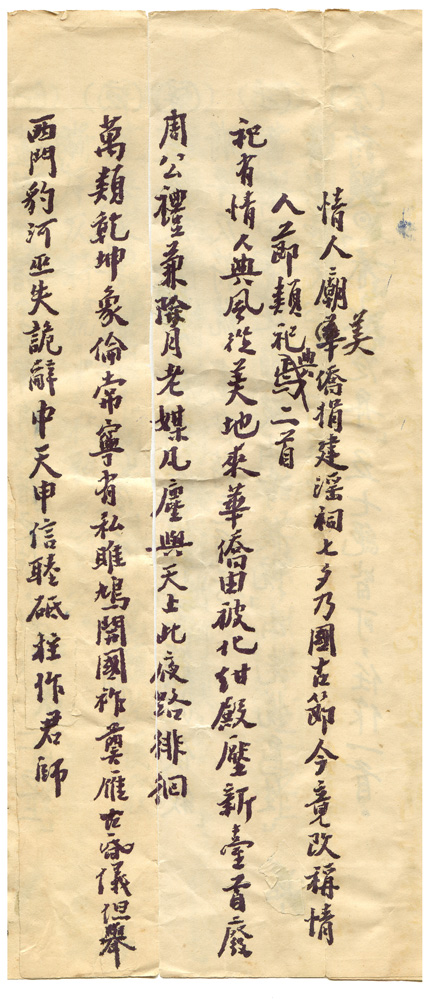 情人廟美華僑捐建淫祠七夕乃國古節今竟改稱情
人節類祀典二首
祀有情人典風從美地來華僑由被化紺殿壓新臺胥廢
周公禮兼隆月老媒凡塵與天上此夜路徘徊
萬類乾坤象倫常寧有私雎鳩關國祚奠雁古昏儀但舉
西門豹河巫失詭辭中天申信睦砥柱作君師